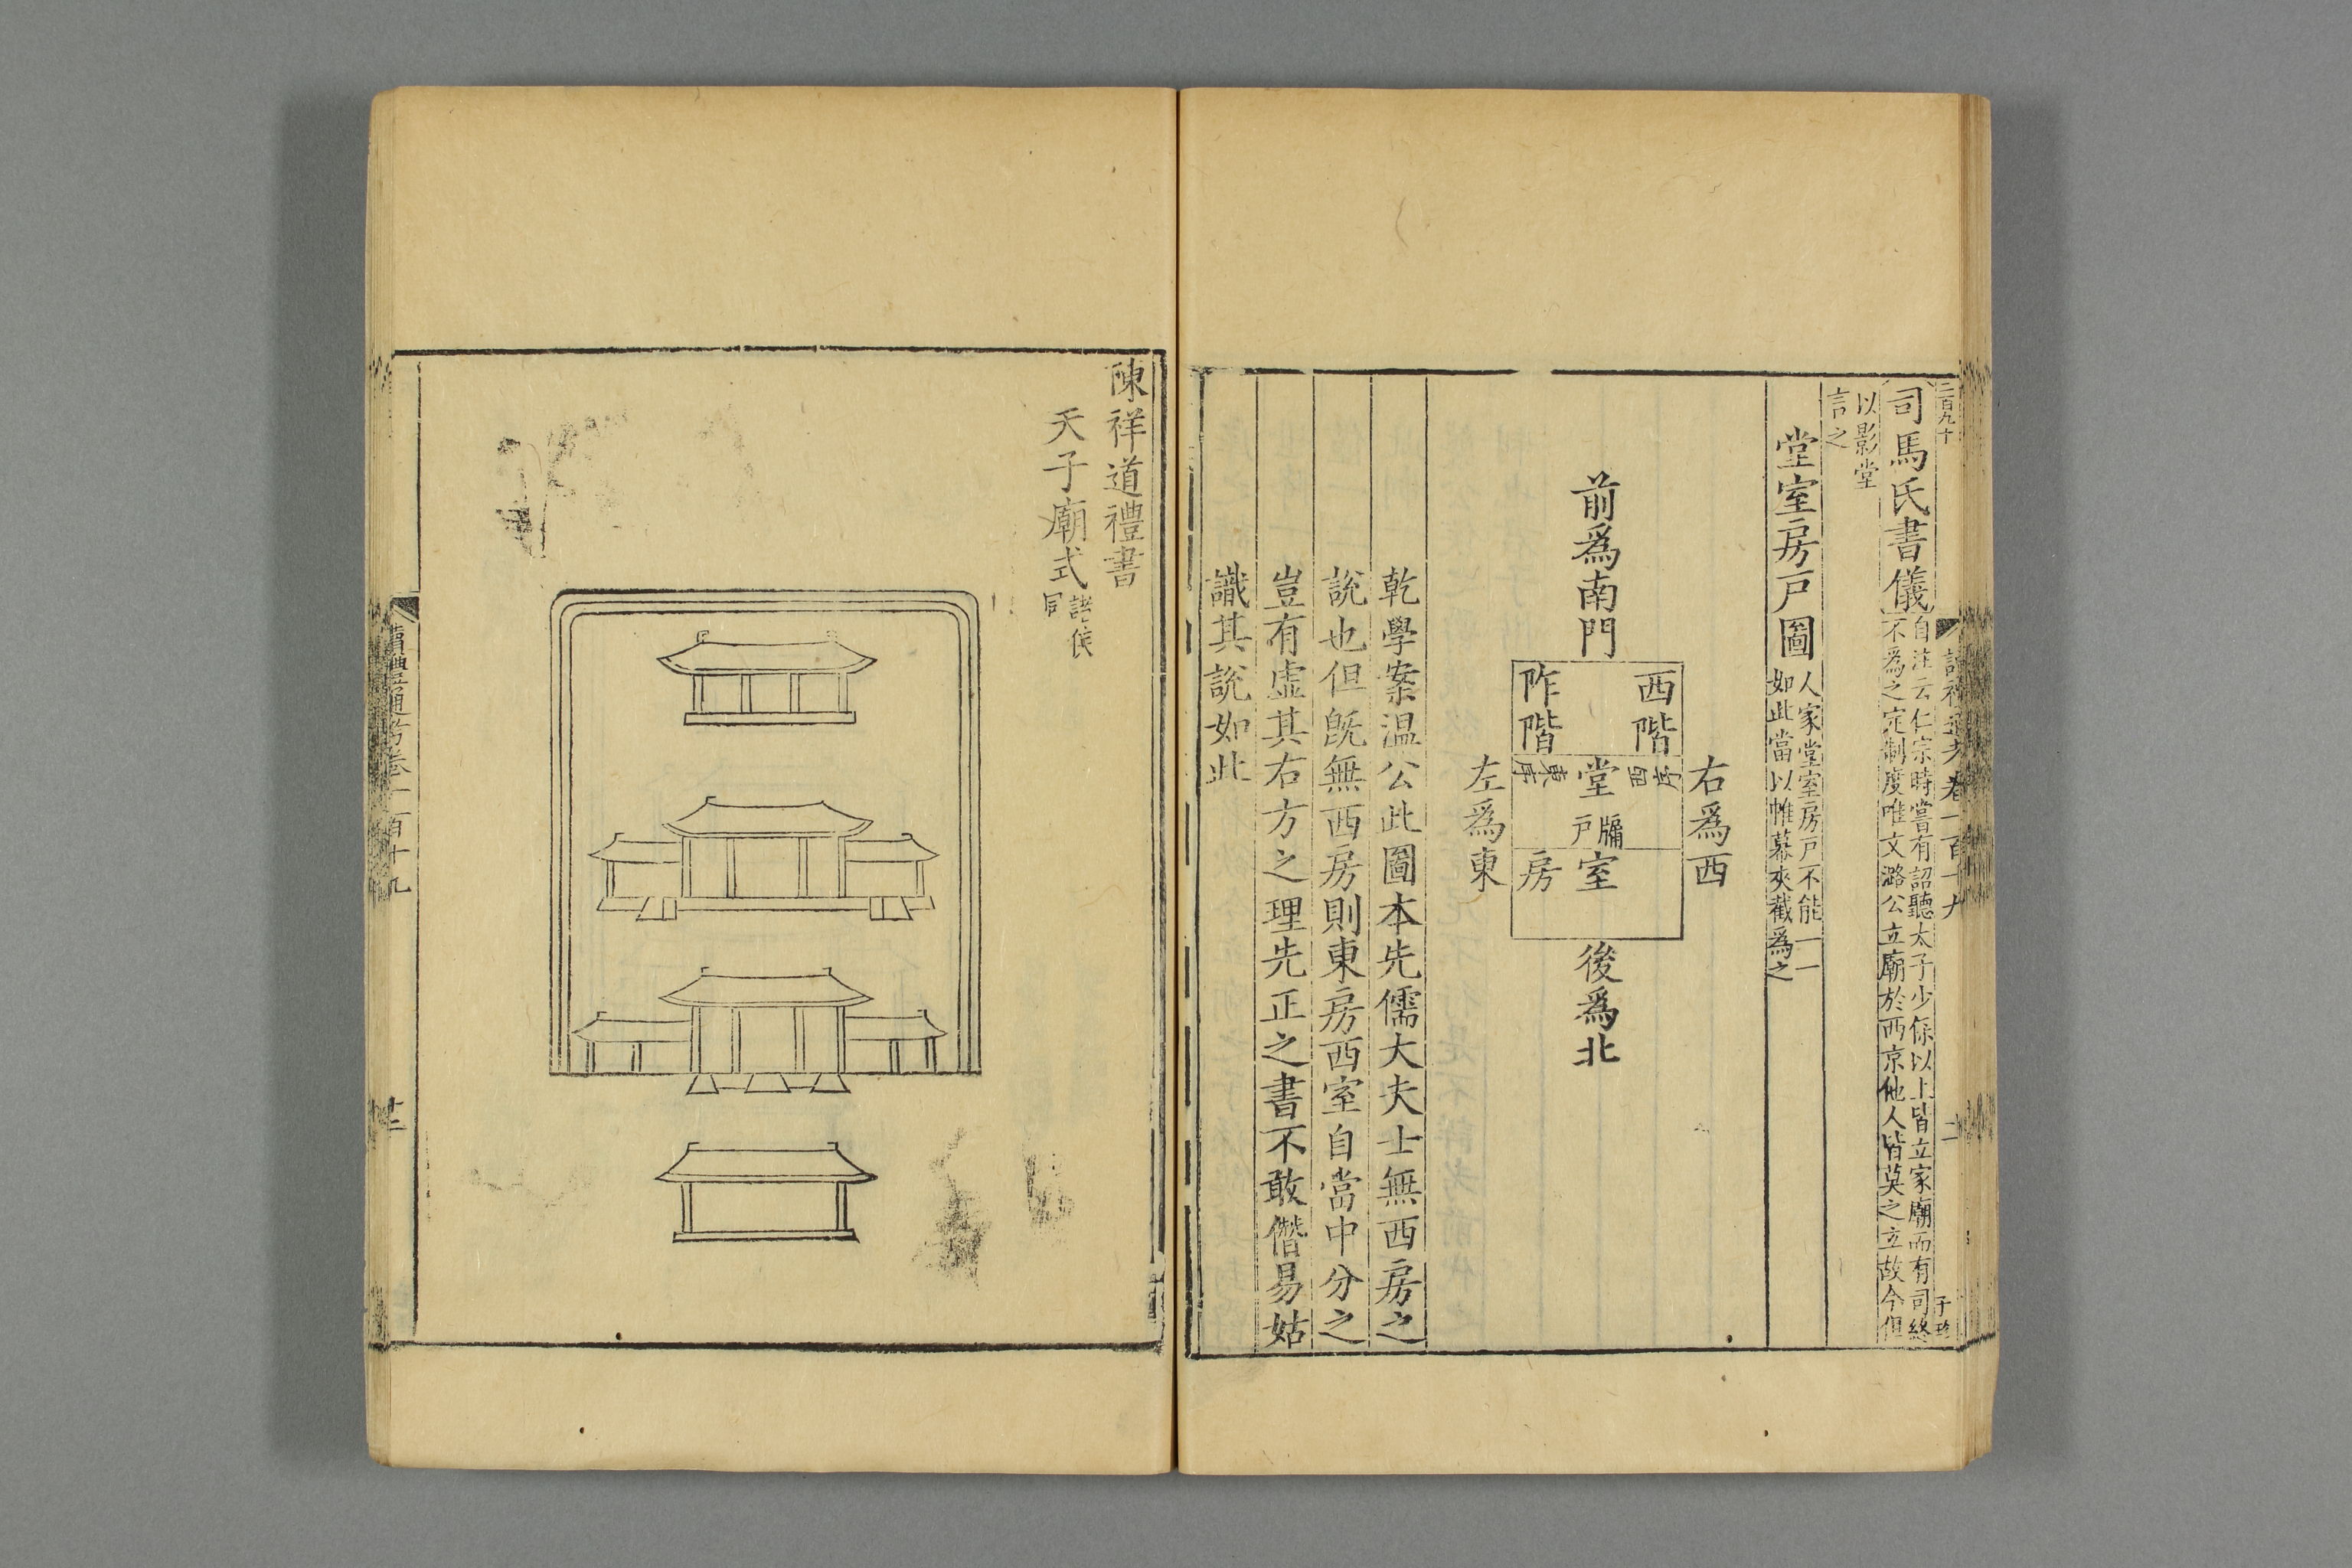 二百九十
讀禮通考卷一百十九
二
司馬氏書儀自注云仁宗時嘗有詔聽太子少保以上皆立家廟而有司終
不為之定制度唯文潞公立廟於西京他人皆莫之立故今但
以影堂
言之
堂室房戶圖人家堂室房戶不能一一
如此當以帷幕夾截為之
右爲西
前爲南門
西階
阼階
西序
堂
東序
牖
戶
室
房
後爲北
左爲東
乾學案溫公此圖本先儒大夫士無西房之
說也但旣無西房則東房西室自當中分之
豈有虛其右方之理先正之書不敢僭易姑
識其說如此
陳祥道禮書
天子廟式諸侯
同
讀禮通考卷一百十九